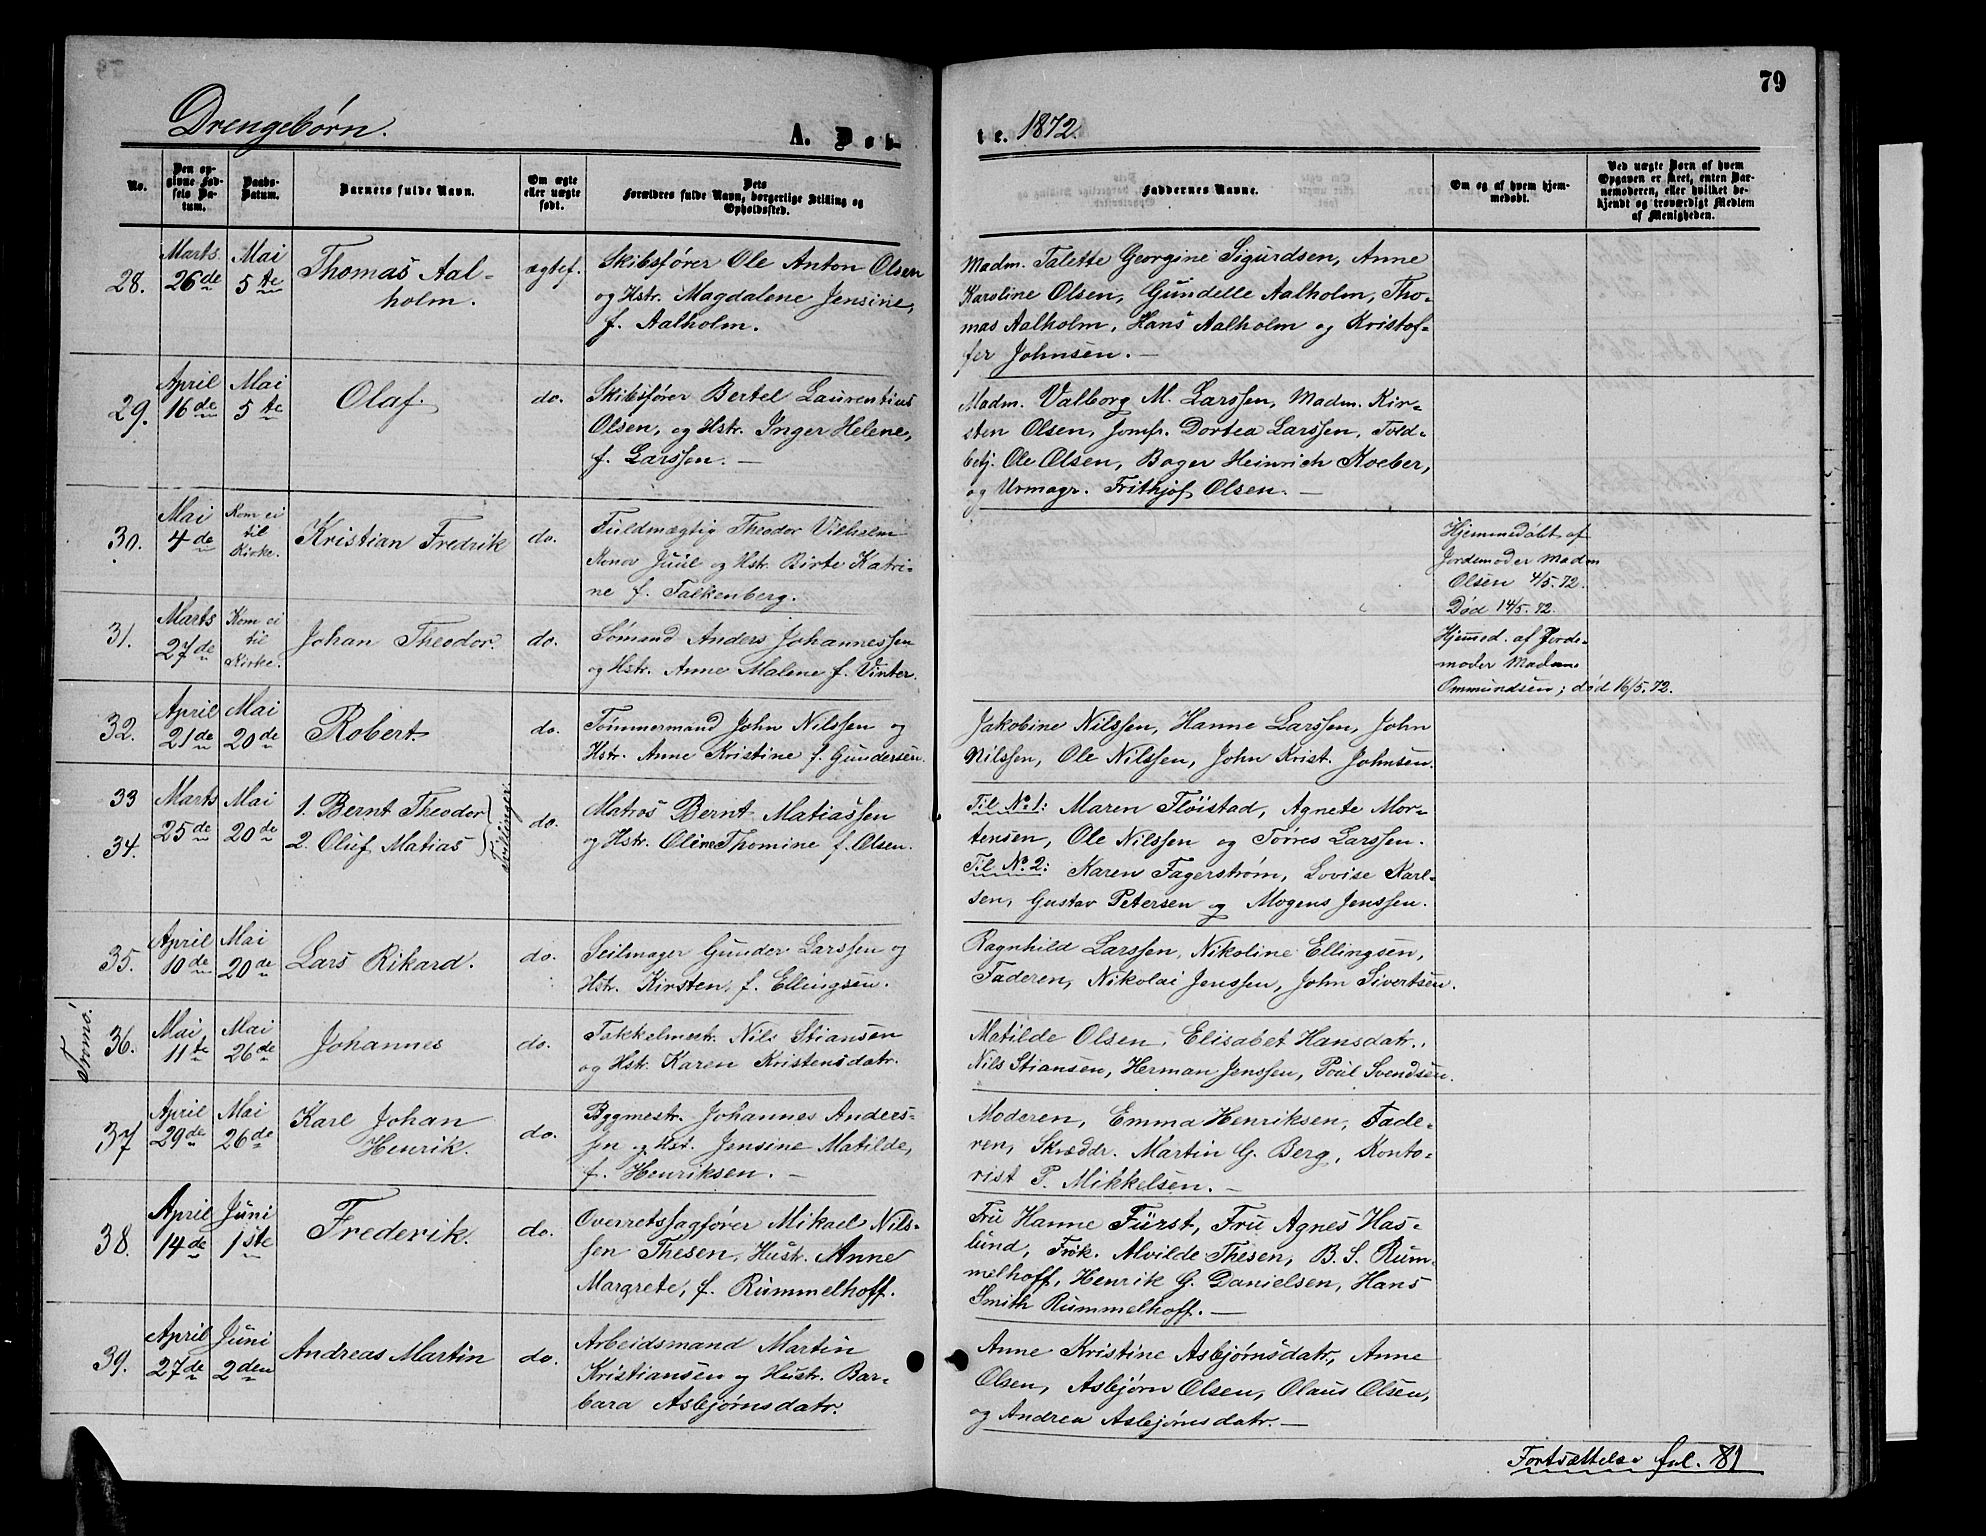 79
Drengebørn.
A. Døb-
te. 1872.
No.
Den op-
givne Fød-
sels Da-
tum.
Daabs-
Datum.
Barnets fulde Navn.
Om ægte
eller uægte
født.
Dets
Forældres fulde Navn, borgerlige Stilling og
Opholdssted.
Faddernes Navne.
Om og af hvem hjem-
medøbt.
Ved uægte Børn af hvem
Opgaven er skeet, enten Bar-
nemoderen, eller hvilket be-
kjendt og troværdigt Medlem
af Menigheden.
28.
Marts
26de
Mai
5te
Thomas Aal-
holm.
ægtef.
Skibsfører Ole Anton Olsen
og Hstr. Magdalene Jensine,
f. Aalholm.
Madm. Talette Georgine Sigurdsen, Anne
Karoline Olsen, Gundelle Aalholm, Tho-
mas Aalholm, Hans Aalholm og Kristof-
fer Johnsen. —
29.
April
16de
Mai
5te
Olaf.
do.
Skibsfører Bertel Laurentius
Olsen, og Hstr. Inger Helene,
f. Larssen. —
Madm. Valborg M. Larssen, Madm. Kir-
sten Olsen, Jomfr. Dortea Larssen, Told-
betj. Ole Olsen, Bager Heinrich Koeber,
og Urmagr. Frithjof Olsen. —
30.
Mai
4de
Kom ei
til
Kirke.
Kristian Fredrik
do.
Fuldmægtig Theodor Vilhelm
Juul og Hstr. Birte Katri-
ne f. Falkenberg.
Hjemmedøbt af
Jordemoder Madm
Olsen 4/5. 72.
Død 14/5. 72.
31.
Marts
27de
Kom ei
til
Kirke.
Johan Theodor.
do.
Sømand Anders Johannessen
og Hstr. Anne Malene f. Vinter.
Hjemmed. af Jorde-
moder Madam
Ommundsen; død 16/5. 72.
32.
April
21de
Mai
20de
Robert
do.
Tømmermand John Nilssen og
Hstr. Anne Kristine f. Gundersen.
Jakobine Nilssen, Hanne Larssen, John
Nilssen, Ole Nilssen, John Krist. Johnsen.
33
34.
Marts
25de
Mai
20de
1. Bernt Theodor
2. Oluf Matias
Tvillinger
do.
Matros Bernt Matiassen
og Hstr. Oline Thomine f. Olsen.
Til No. 1: Maren Fløistad, Agnete Mor-
tensen, Ole Nilssen og Tørres Larssen.
Til No. 2: Karen Fagerstrøm, Lovise Karl-
sen, Gustav Petersen og Mogens Jenssen.
35.
April
10de
Mai
20de
Lars Rikard.
do.
Seilmager Gunder Larssen og
Hstr. Kirsten, f. Ellingsen.
Ragnhild Larssen, Nikoline Ellingsen,
Faderen, Nikolai Jenssen, John Sivertsen.
Tromø.
36.
Mai
11te
Mai
26de
Johannes
do.
Takkelmestr. Nils Stiansen
og Hstr. Karen Kristensdatr.
Matilde Olsen, Elisabet Hansdatr.,
Nils Stiansen, Herman Jenssen, Poul Svendsen.
37
April
29de
Mai
26de
Karl Johan
Henrik.
do.
Bygmestr. Johannes Anders-
sen og Hst. Jensine Matilde,
f. Henriksen. —
Moderen, Emma Henriksen, Fade-
ren, Skræddr. Martin G. Berg, Konto-
rist P. Mikkelsen. —
38.
April
14de
Juni
1ste
Frederik.
do.
Overretssagfører Mikael Nils-
sen Thesen, Hustr. Anne
Margrete, f. Rummelhoff.
Fru Hanne Fürst, Fru Agnes Has-
lund, Frøk. Alvilde Thesen, B. S. Rum-
melhoff, Henrik G. Danielsen, Hans
Smith Rummelhoff. —
39.
April
27de
Juni
2den
Andreas Martin
do.
Arbeidsmand Martin
Kristiansen og Hustr. Bar-
bara Asbjørnsdatr.
Anne Kristine Asbjørnsdatr., Anne
Olsen, Asbjørn Olsen, Olaus Olsen,
og Andrea Asbjørnsdatr. —
Fortsættelse fol. 81